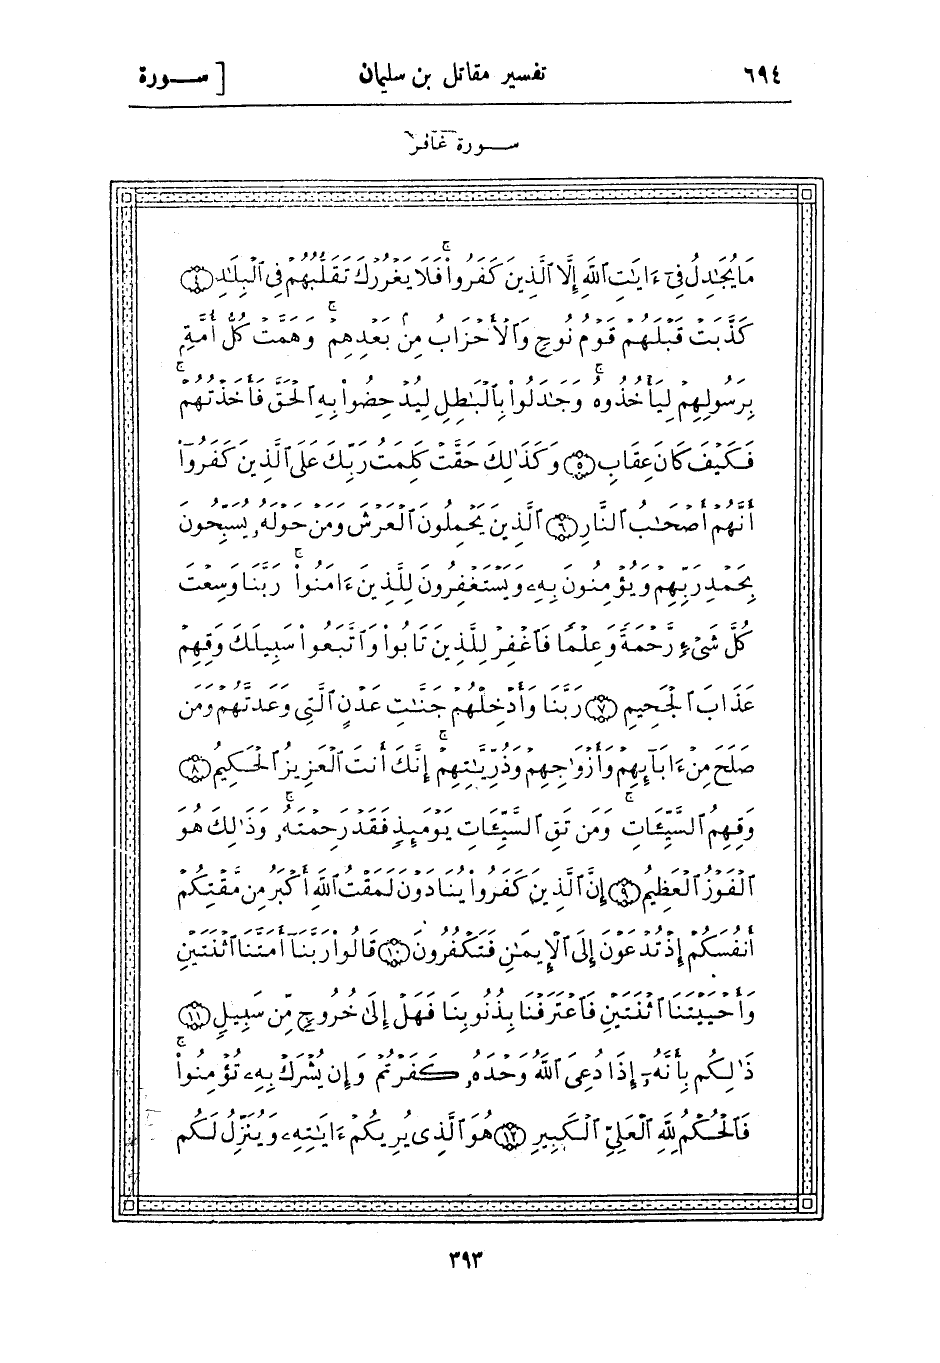 ٦٩٤ تفسير مقاتل بن سليمان [ ســورة
ســورة غافر
مَا يُجَٰدِلُ فِىٓ ءَايَٰتِ ٱللَّهِ إِلَّا ٱلَّذِينَ كَفَرُوا۟ ۚ فَلَا يَغْرُرْكَ تَقَلُّبُهُمْ فِى ٱلْبِلَٰدِ ﴿٤﴾
كَذَّبَتْ قَبْلَهُمْ قَوْمُ نُوحٍ وَٱلْأَحْزَابُ مِنۢ بَعْدِهِمْ ۚ وَهَمَّتْ كُلُّ أُمَّةٍۭ
بِرَسُولِهِمْ لِيَأْخُذُوهُ ۚ وَجَٰدَلُوا۟ بِٱلْبَٰطِلِ لِيُدْحِضُوا۟ بِهِ ٱلْحَقَّ فَأَخَذْتُهُمْ ۚ
فَكَيْفَ كَانَ عِقَابِ ﴿٥﴾ وَكَذَٰلِكَ حَقَّتْ كَلِمَتُ رَبِّكَ عَلَى ٱلَّذِينَ كَفَرُوٓا۟
أَنَّهُمْ أَصْحَٰبُ ٱلنَّارِ ﴿٦﴾ ٱلَّذِينَ يَحْمِلُونَ ٱلْعَرْشَ وَمَنْ حَوْلَهُۥ يُسَبِّحُونَ
بِحَمْدِ رَبِّهِمْ وَيُؤْمِنُونَ بِهِۦ وَيَسْتَغْفِرُونَ لِلَّذِينَ ءَامَنُوا۟ ۚ رَبَّنَا وَسِعْتَ
كُلَّ شَىْءٍ رَّحْمَةً وَعِلْمًا فَٱغْفِرْ لِلَّذِينَ تَابُوا۟ وَٱتَّبَعُوا۟ سَبِيلَكَ وَقِهِمْ
عَذَابَ ٱلْجَحِيمِ ﴿٧﴾ رَبَّنَا وَأَدْخِلْهُمْ جَنَّٰتِ عَدْنٍ ٱلَّتِى وَعَدتَّهُمْ وَمَن
صَلَحَ مِنْ ءَابَآئِهِمْ وَأَزْوَٰجِهِمْ وَذُرِّيَّٰتِهِمْ ۚ إِنَّكَ أَنتَ ٱلْعَزِيزُ ٱلْحَكِيمُ ﴿٨﴾
وَقِهِمُ ٱلسَّيِّـَٔاتِ ۚ وَمَن تَقِ ٱلسَّيِّـَٔاتِ يَوْمَئِذٍ فَقَدْ رَحِمْتَهُۥ ۚ وَذَٰلِكَ هُوَ
ٱلْفَوْزُ ٱلْعَظِيمُ ﴿٩﴾ إِنَّ ٱلَّذِينَ كَفَرُوا۟ يُنَادَوْنَ لَمَقْتُ ٱللَّهِ أَكْبَرُ مِن مَّقْتِكُمْ
أَنفُسَكُمْ إِذْ تُدْعَوْنَ إِلَى ٱلْإِيمَٰنِ فَتَكْفُرُونَ ﴿١٠﴾ قَالُوا۟ رَبَّنَآ أَمَتَّنَا ٱثْنَتَيْنِ
وَأَحْيَيْتَنَا ٱثْنَتَيْنِ فَٱعْتَرَفْنَا بِذُنُوبِنَا فَهَلْ إِلَىٰ خُرُوجٍ مِّن سَبِيلٍ ﴿١١﴾
ذَٰلِكُم بِأَنَّهُۥٓ إِذَا دُعِىَ ٱللَّهُ وَحْدَهُۥ كَفَرْتُمْ ۖ وَإِن يُشْرَكْ بِهِۦ تُؤْمِنُوا۟ ۚ
فَٱلْحُكْمُ لِلَّهِ ٱلْعَلِىِّ ٱلْكَبِيرِ ﴿١٢﴾ هُوَ ٱلَّذِى يُرِيكُمْ ءَايَٰتِهِۦ وَيُنَزِّلُ لَكُم
٣٩٣